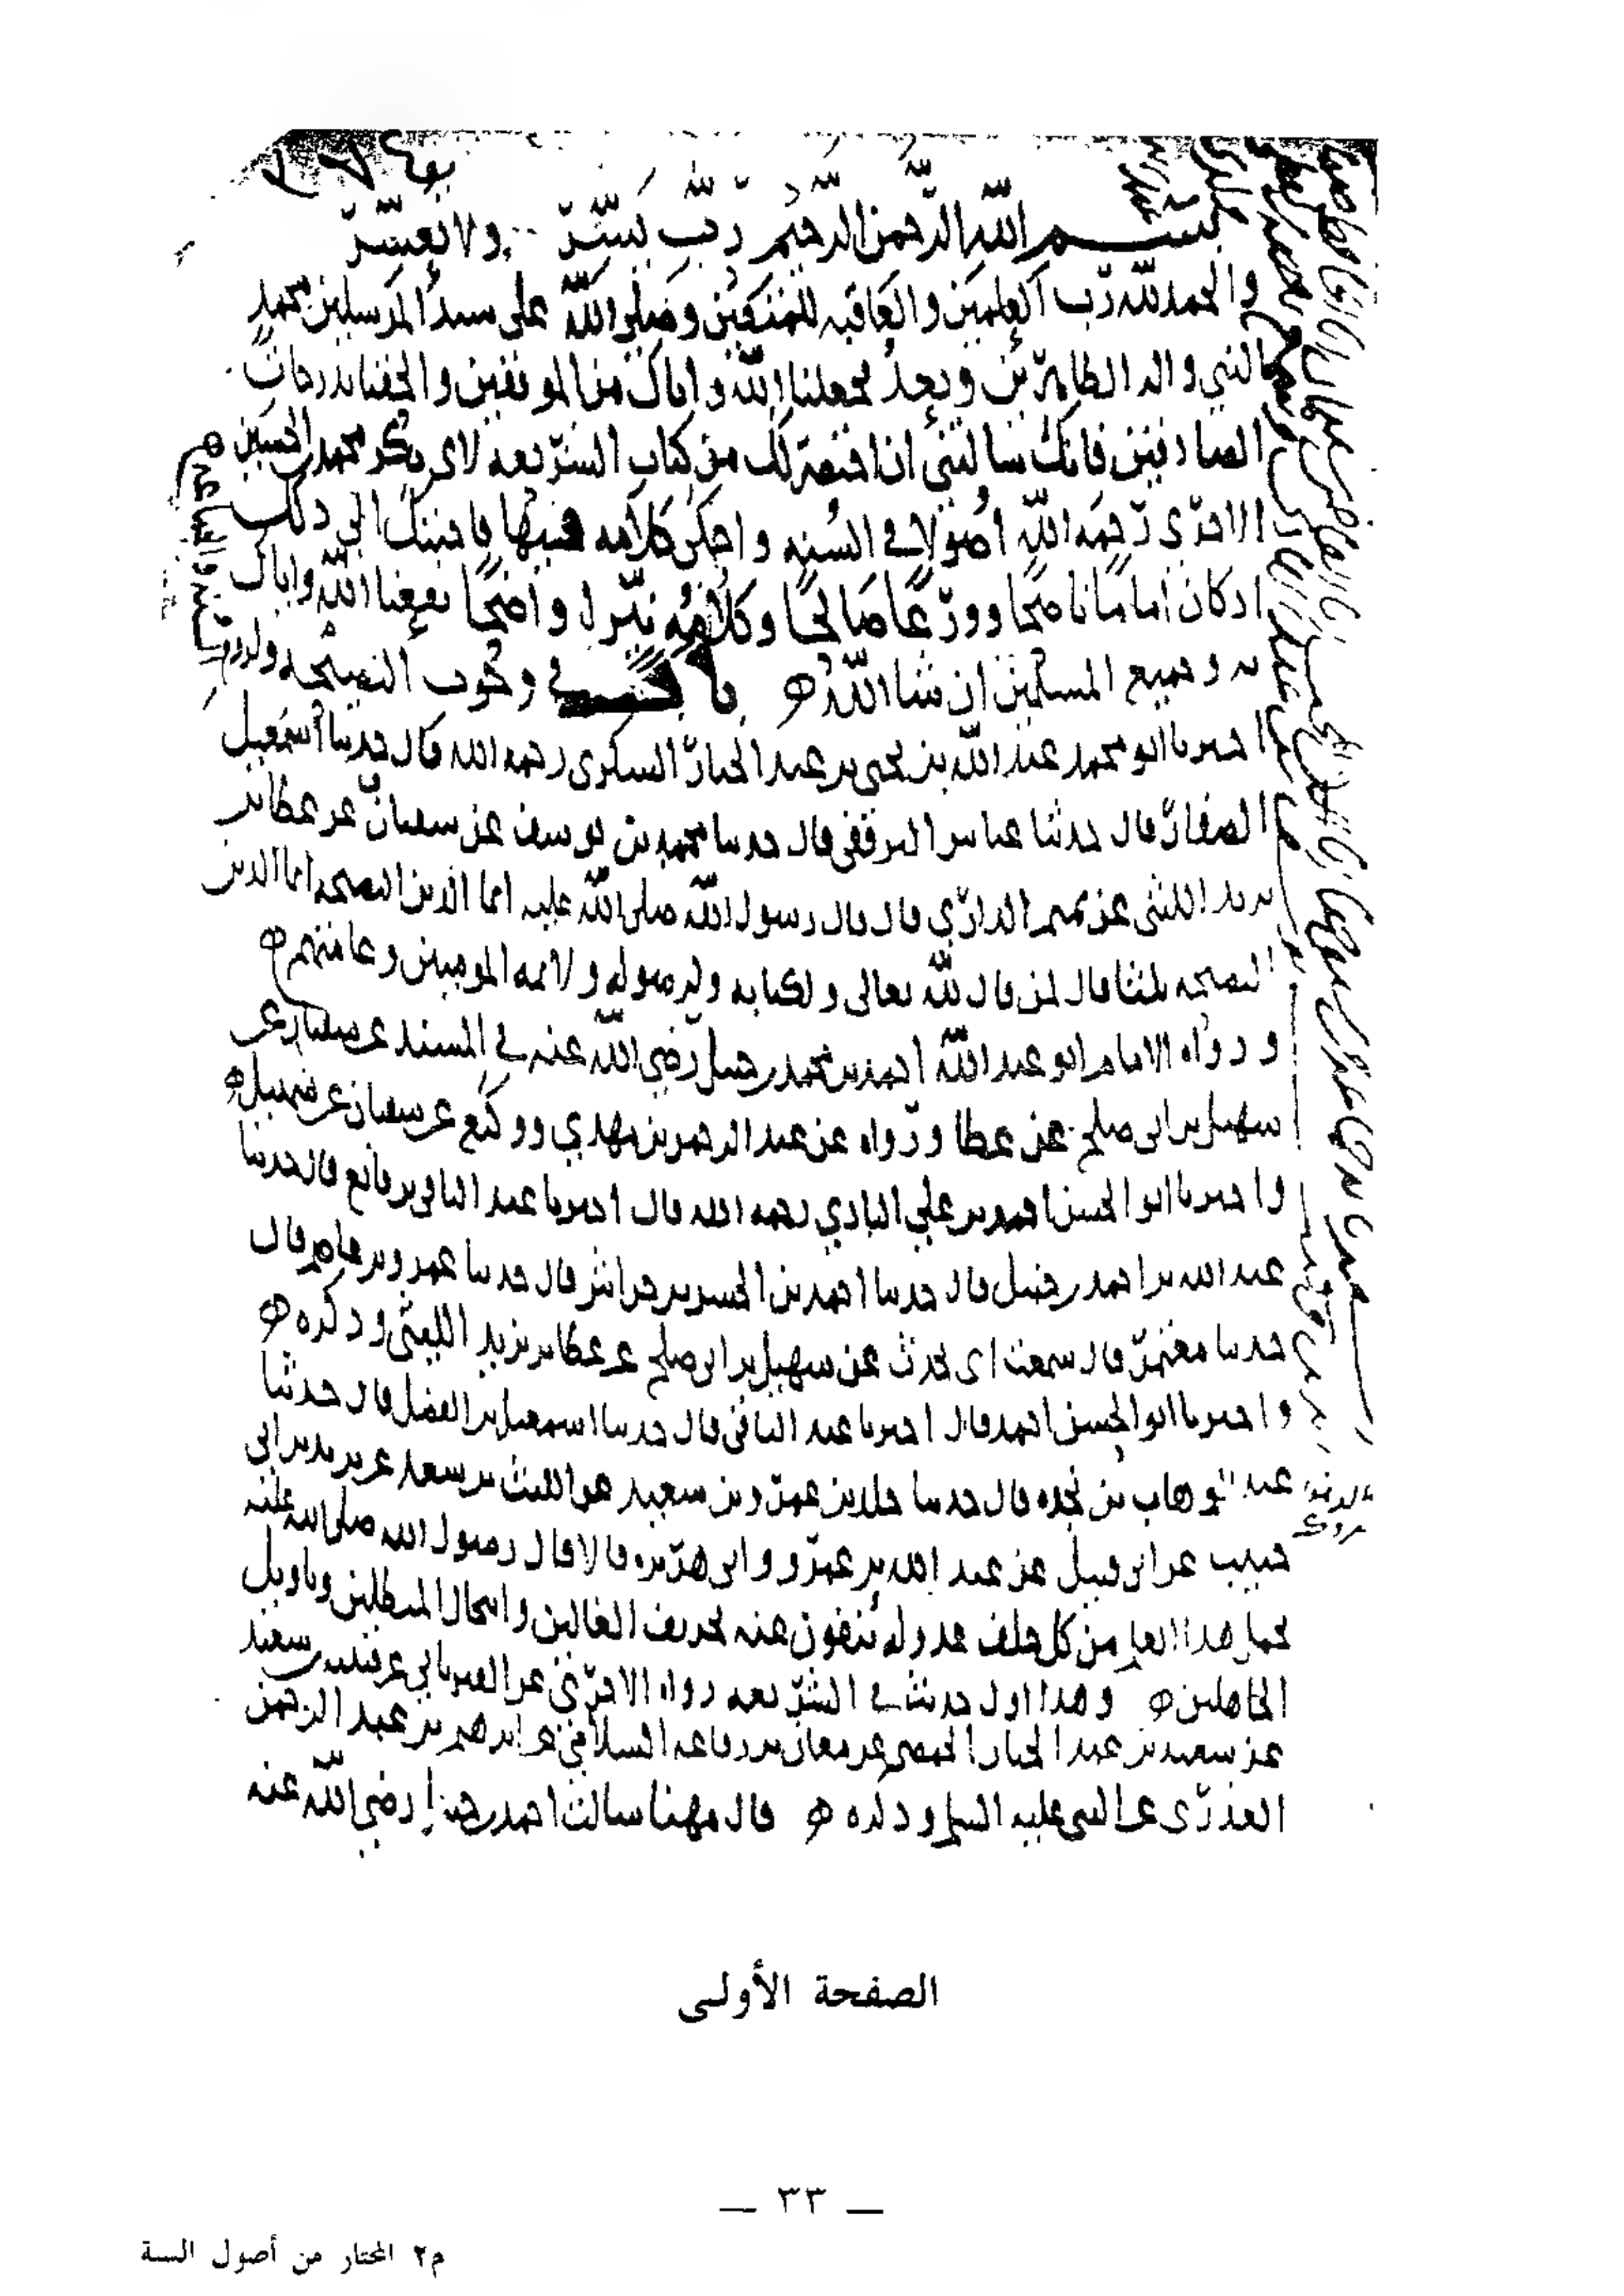 بسم الله الرحمن الرحيم رب يسر ولا تعسر
والحمد لله رب العلمين والعاقبه للمتقين وصلى الله على سيد المرسلين محمد
النبي واله الطاهرين وبعد جعلنا الله واياك من الموفقين والحقنا بدرجات
الصادقين فانك سالتني ان اختصر لك من كتاب الشريعه لابي بكر محمد بن الحسين
الاجري رحمه الله اصولا في السنه واحكي كلامه فيها فاجبتك الى ذلك
اذ كان اماما ناصحا وورعا صالحا وكلامه نير واضحا نفعنا الله واياك
به وجميع المسلمين ان شا الله باب في وجوب النصيحه ولزوم
السنه والجماعه
اخبرنا ابو محمد عبد الله بن يحيى بن عبد الجبار السكري رحمه الله قال حدثنا اسمعيل
الصفار قال حدثنا عباس الترقفي قال حدثنا محمد بن يوسف عن سفيان عن عطا بن
يزيد الليثي عن تميم الداري قال قال رسول الله صلى الله عليه انما الدين النصيحه انما الدين
النصيحه ثلثا قال لمن قال لله تعالى ولكتابه ولرسوله ولائمه المومنين وعامتهم
ورواه الامام ابو عبد الله احمد بن محمد بن حنبل رضي الله عنه في المسند عن سفيان عن
سهيل بن ابي صلح عن عطا ورواه عن عبد الرحمن بن مهدي ووكيع عن سفيان عن سهيل
واخبرنا ابو الحسن احمد بن علي البادي رحمه الله قال اخبرنا عبد الباقي بن قانع قال حدثنا
عبد الله بن احمد بن حنبل قال حدثنا احمد بن الحسن بن خراش قال حدثنا عمرو بن عاصم قال
حدثنا معتمر قال سمعت ابي يحدث عن سهيل بن ابي صلح عن عطا بن يزيد الليثي وذكره
واخبرنا ابو الحسن احمد قال اخبرنا عبد الباقي قال حدثنا اسمعيل بن الفضل قال حدثنا
عبد الوهاب بن نجده قال حدثنا خلد بن عمرو بن سعيد عن الليث بن سعد عن يزيد بن ابي
حبيب عن ابي قبيل عن عبد الله بن عمرو وابي هريره قالا قال رسول الله صلى الله عليه
يحمل هذا العلم من كل خلف عدوله ينفون عنه تحريف الغالين وانتحال المبطلين وتاويل
الجاهلين وهذا اول حديث في الشريعه رواه الاجري عن الفريابي عن قتيبه بن سعيد
عن سعيد بن عبد الجبار الحمصي عن معان بن رفاعه السلامي عن ابرهيم بن عبد الرحمن
العذري عن النبي عليه السلم وذكره قال مهنا سالت احمد بن حنبل رضي الله عنه
الصفحة الأولى
— ٣٣ —
م٢ المختار من أصول السنة